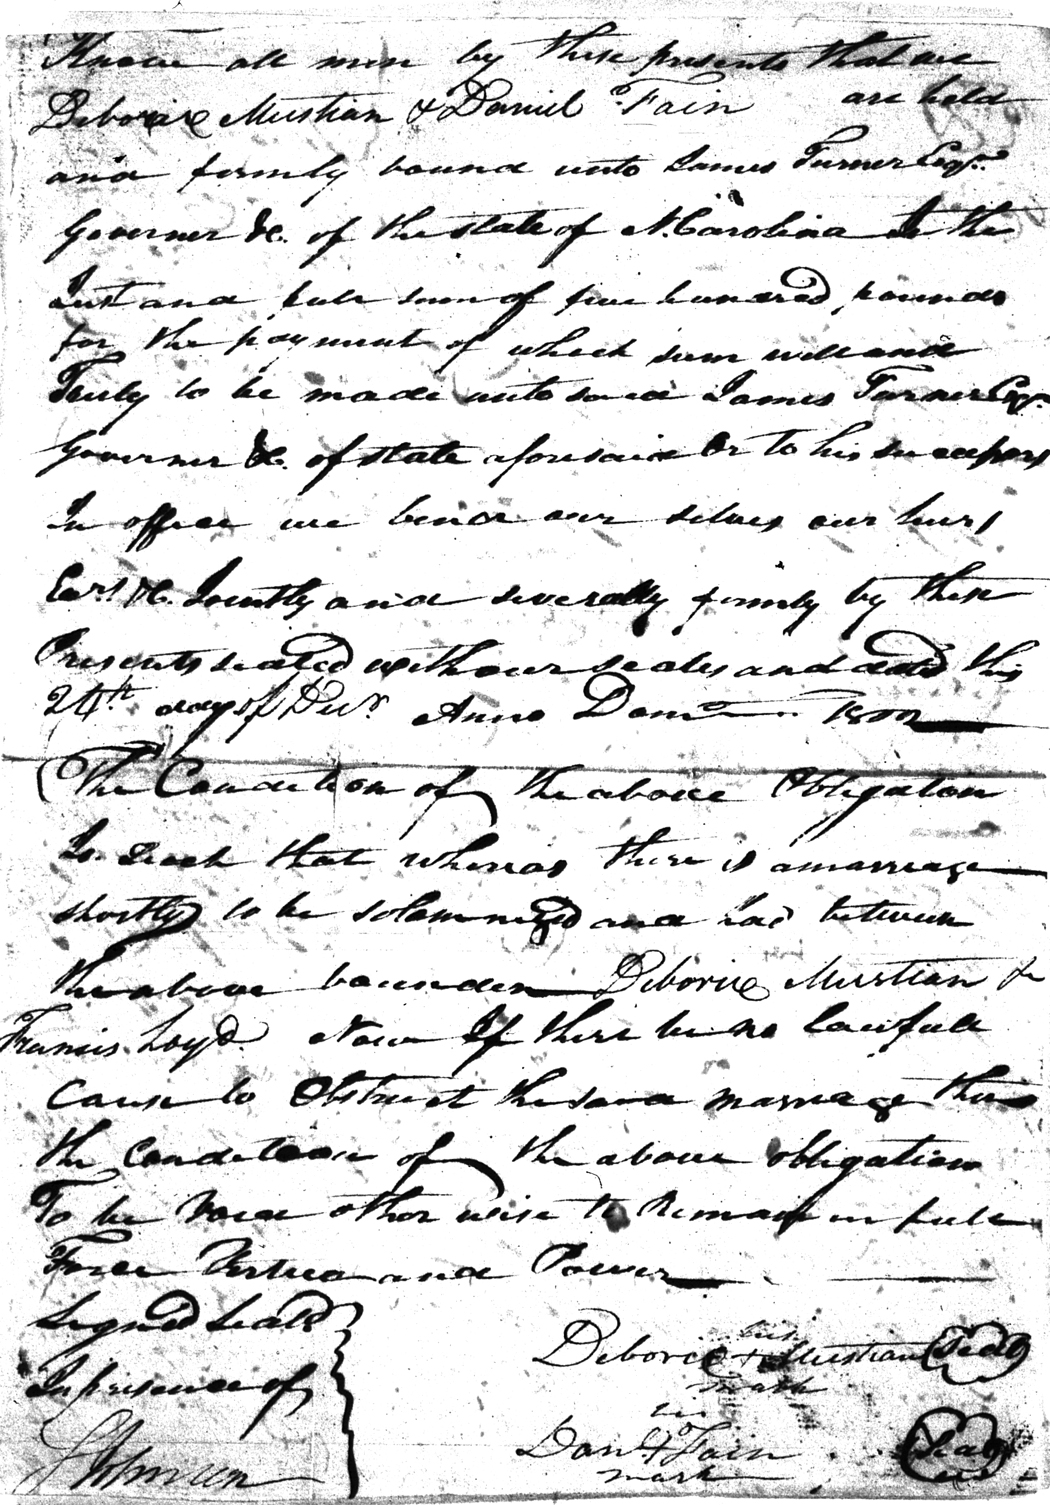 Know all men by these presents that we
Deborix Mustian & Daniel oFain are held
and firmly bound unto James Turner Esqr.
Governer &c. of the state of N.Carolina In the
Just and full sum of five hundred pounds
for the payment of which sum well and
Truly to be made unto said James Turner Esqr.
Governer &c. of state aforesaid Or to his successors
In office we bind our selves our heirs
Exrs &c. Jointly and severally firmly by these
Presents sealed with our seales and dated this
24th day of Decr. Anno Domo
The Condition of the above Obligation
Is Such that whereas there is a marriage
shortly to be solemnized and had between
the above bounden Deborix Mustian &
Francis Loyd. Now If there be no lawfull
Cause to Obstruct the said marriage then
the Condition of the above obligation
To be Void other wise to Remain in full
Force Vertue and Power
Signed Seald
In presence of
his
Deborix + Mustian Seal
mark
his
Danl + oFain Seal
mark